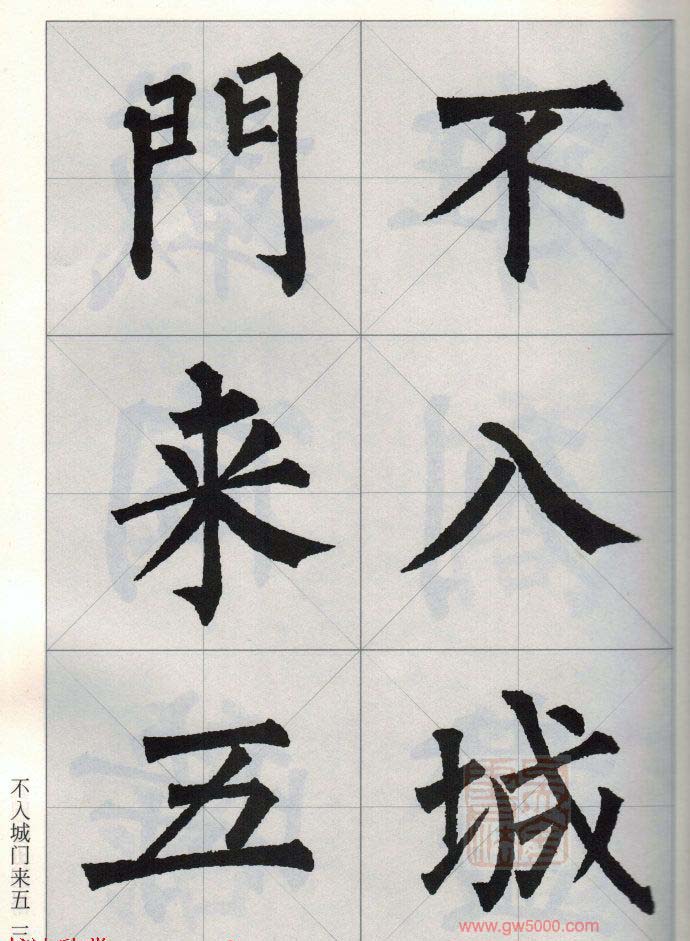 不入城
門来五
不入城门来五 三
www.gw5000.com